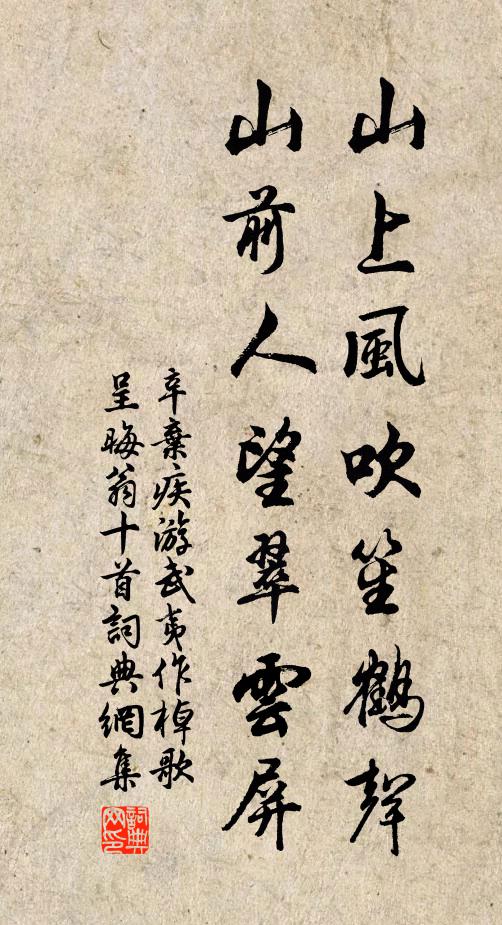 山上風吹笙鶴聲
山前人望翠雲屏
辛棄疾游武夷作棹歌
呈晦翁十首詞典網集
詞典
网印